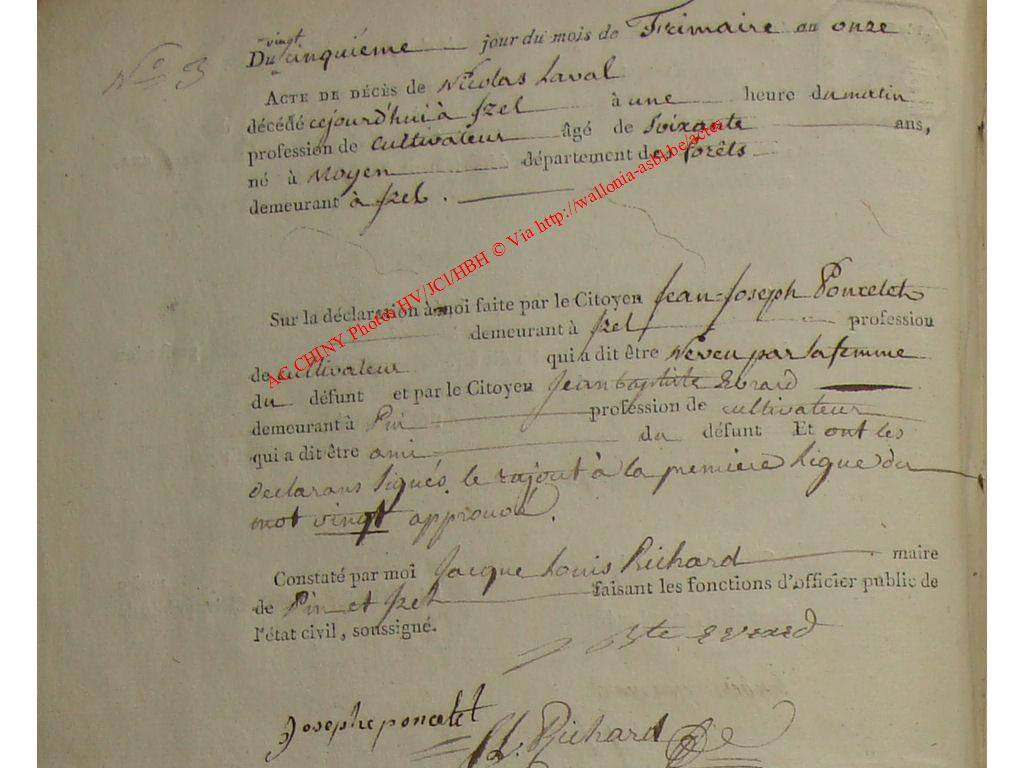 N° 3
vingt
Du cinquième jour du mois de Frimaire an onze
ACTE DE DÉCÈS de Nicolas Laval
décédé cejourd'hui à Izel à une heure du matin
profession de cultivateur âgé de Soixante ans,
né à Moyen département des forêts
demeurant à Izel.
Sur la déclaration à moi faite par le Citoyen Jean-Joseph Poncelet
demeurant à Izel profession
de cultivateur qui a dit être Neveu par sa femme
du défunt et par le Citoyen Jean baptiste Evrard
demeurant à Pin profession de cultivateur
qui a dit être ami du défunt Et ont les
declarans signés. le rajout à la premiere ligne du
mot vingt approuvé.
Constaté par moi Jacque Louis Richard maire
de Pin et Izel faisant les fonctions d'officier public de
l'état civil, soussigné.
J Bte evrard
Josephe poncelet
JL. Richard
AC CHINY Photos HV/JCl/HBH © Via http://wallonia-asbl.be/actes